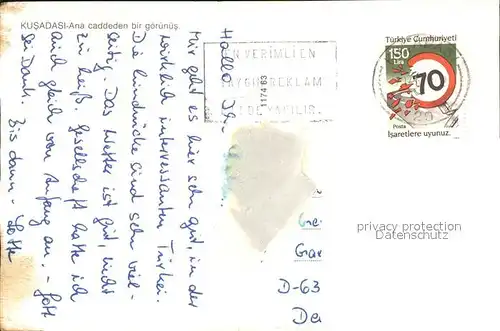 KUŞADASI-Ana caddeden bir görünüş.
Hallo
Mir geht es hier sehr gut, in der
wirklich interressanten Türkei.
Die Eindrücke sind sehr viel-
seitig. Das Wetter ist gut, nicht
zu heiß. Gesellschaft hatte ich
auch gleich vom Anfang an. - Gott
sei Dank. Bis dann - Lotte
EN VERİMLİ EN
REKLAM
1174.63
Türkiye Cumhuriyeti
150
Lira
70
Posta
İşaretlere uyunuz.
privacy protection
Datenschutz
D-63